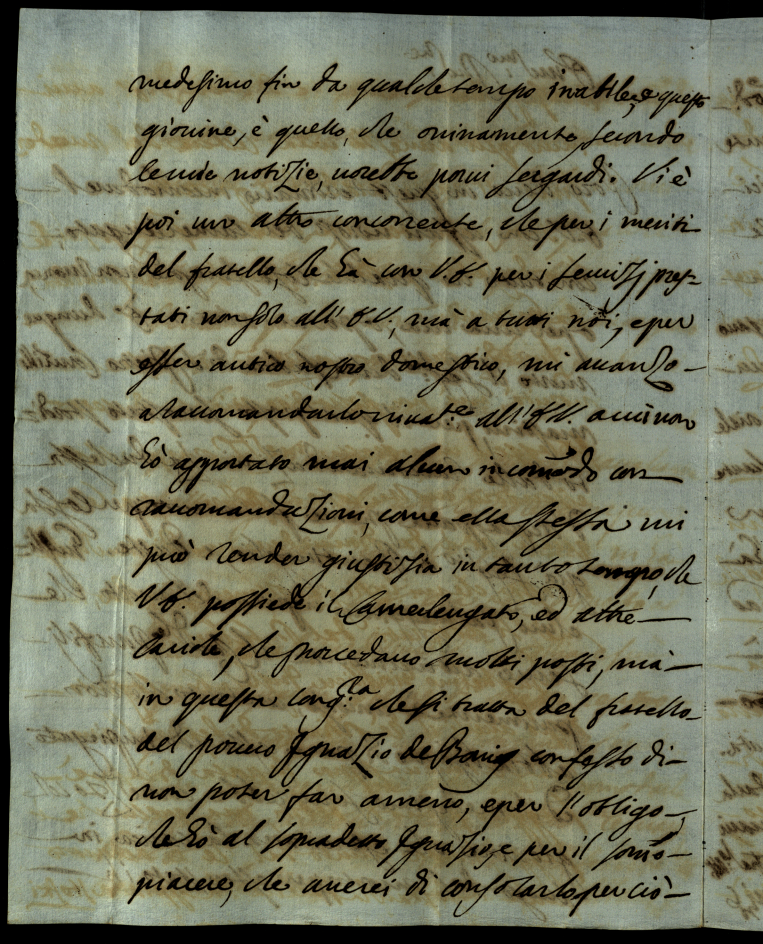 medesimo fin da qualche tempo inabile, e questo
giovine, è quello, che oninamente secondo
le mie notizie, vorebbe porvi Sergardi. Vi è
poi un altro concorrente, che per i meriti
del fratello, che hà con V.E. per i servizj pres-
tati non solo all' E.V., mà a tutti noi, e per
esser antico nostro domestico, mi avanzo
a racomandarlo all' E.V. a cui non
hò apportato mai alcun incomodo con
racomandazioni, come ella stessa mi
può render giustizia in tanto tempo, che
V.E. possiede il Camerlengato, ed altre
cariche, che procedano molti posti, mà
in questa cong.ra che si tratta del fratello
del povero Ignazio de confesso di
non poter far ameno, e per l'obligo,
che hò al sopradetto Ignazio, e per il somo
piacere, che averei di consolarlo per ciò